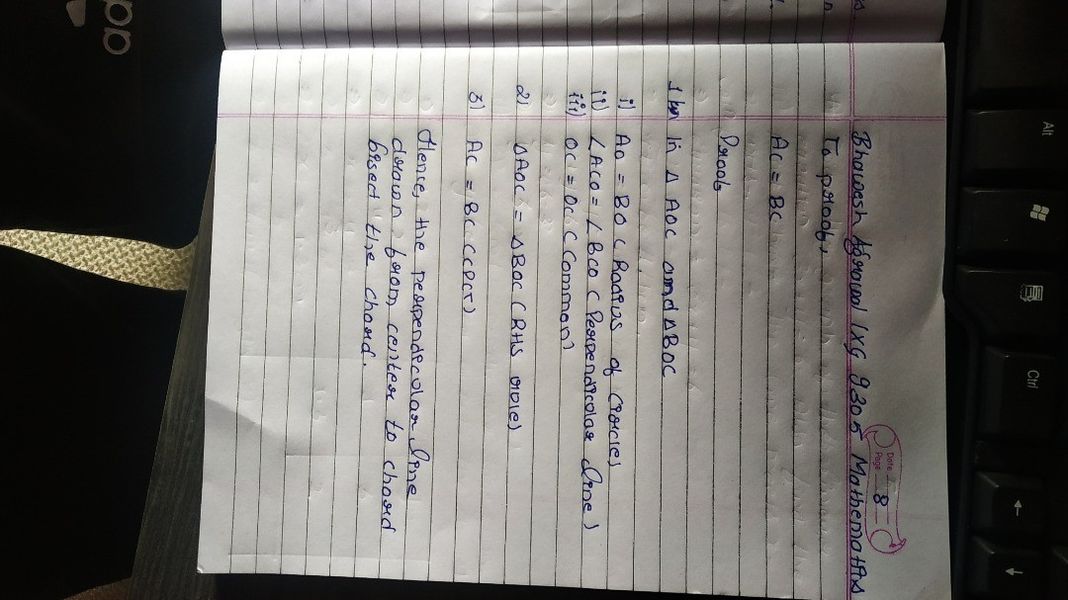 Date
Page 8
Bhawesh Agrawal IXG 9305 Mathematics
To proof,
AC = BC
Proof
1) In Δ AOC and Δ BOC
i) AO = BO (Radius of Circle)
ii) ∠ACO = ∠BCO (Perpendicular line)
iii) OC = OC (Common)
2) ΔAOC = ΔBOC (RHS rule)
3) AC = BC (CPCT)
Hence, the perpendicular line
drawn from center to chord
bisect the chord.
Alt
Ctrl